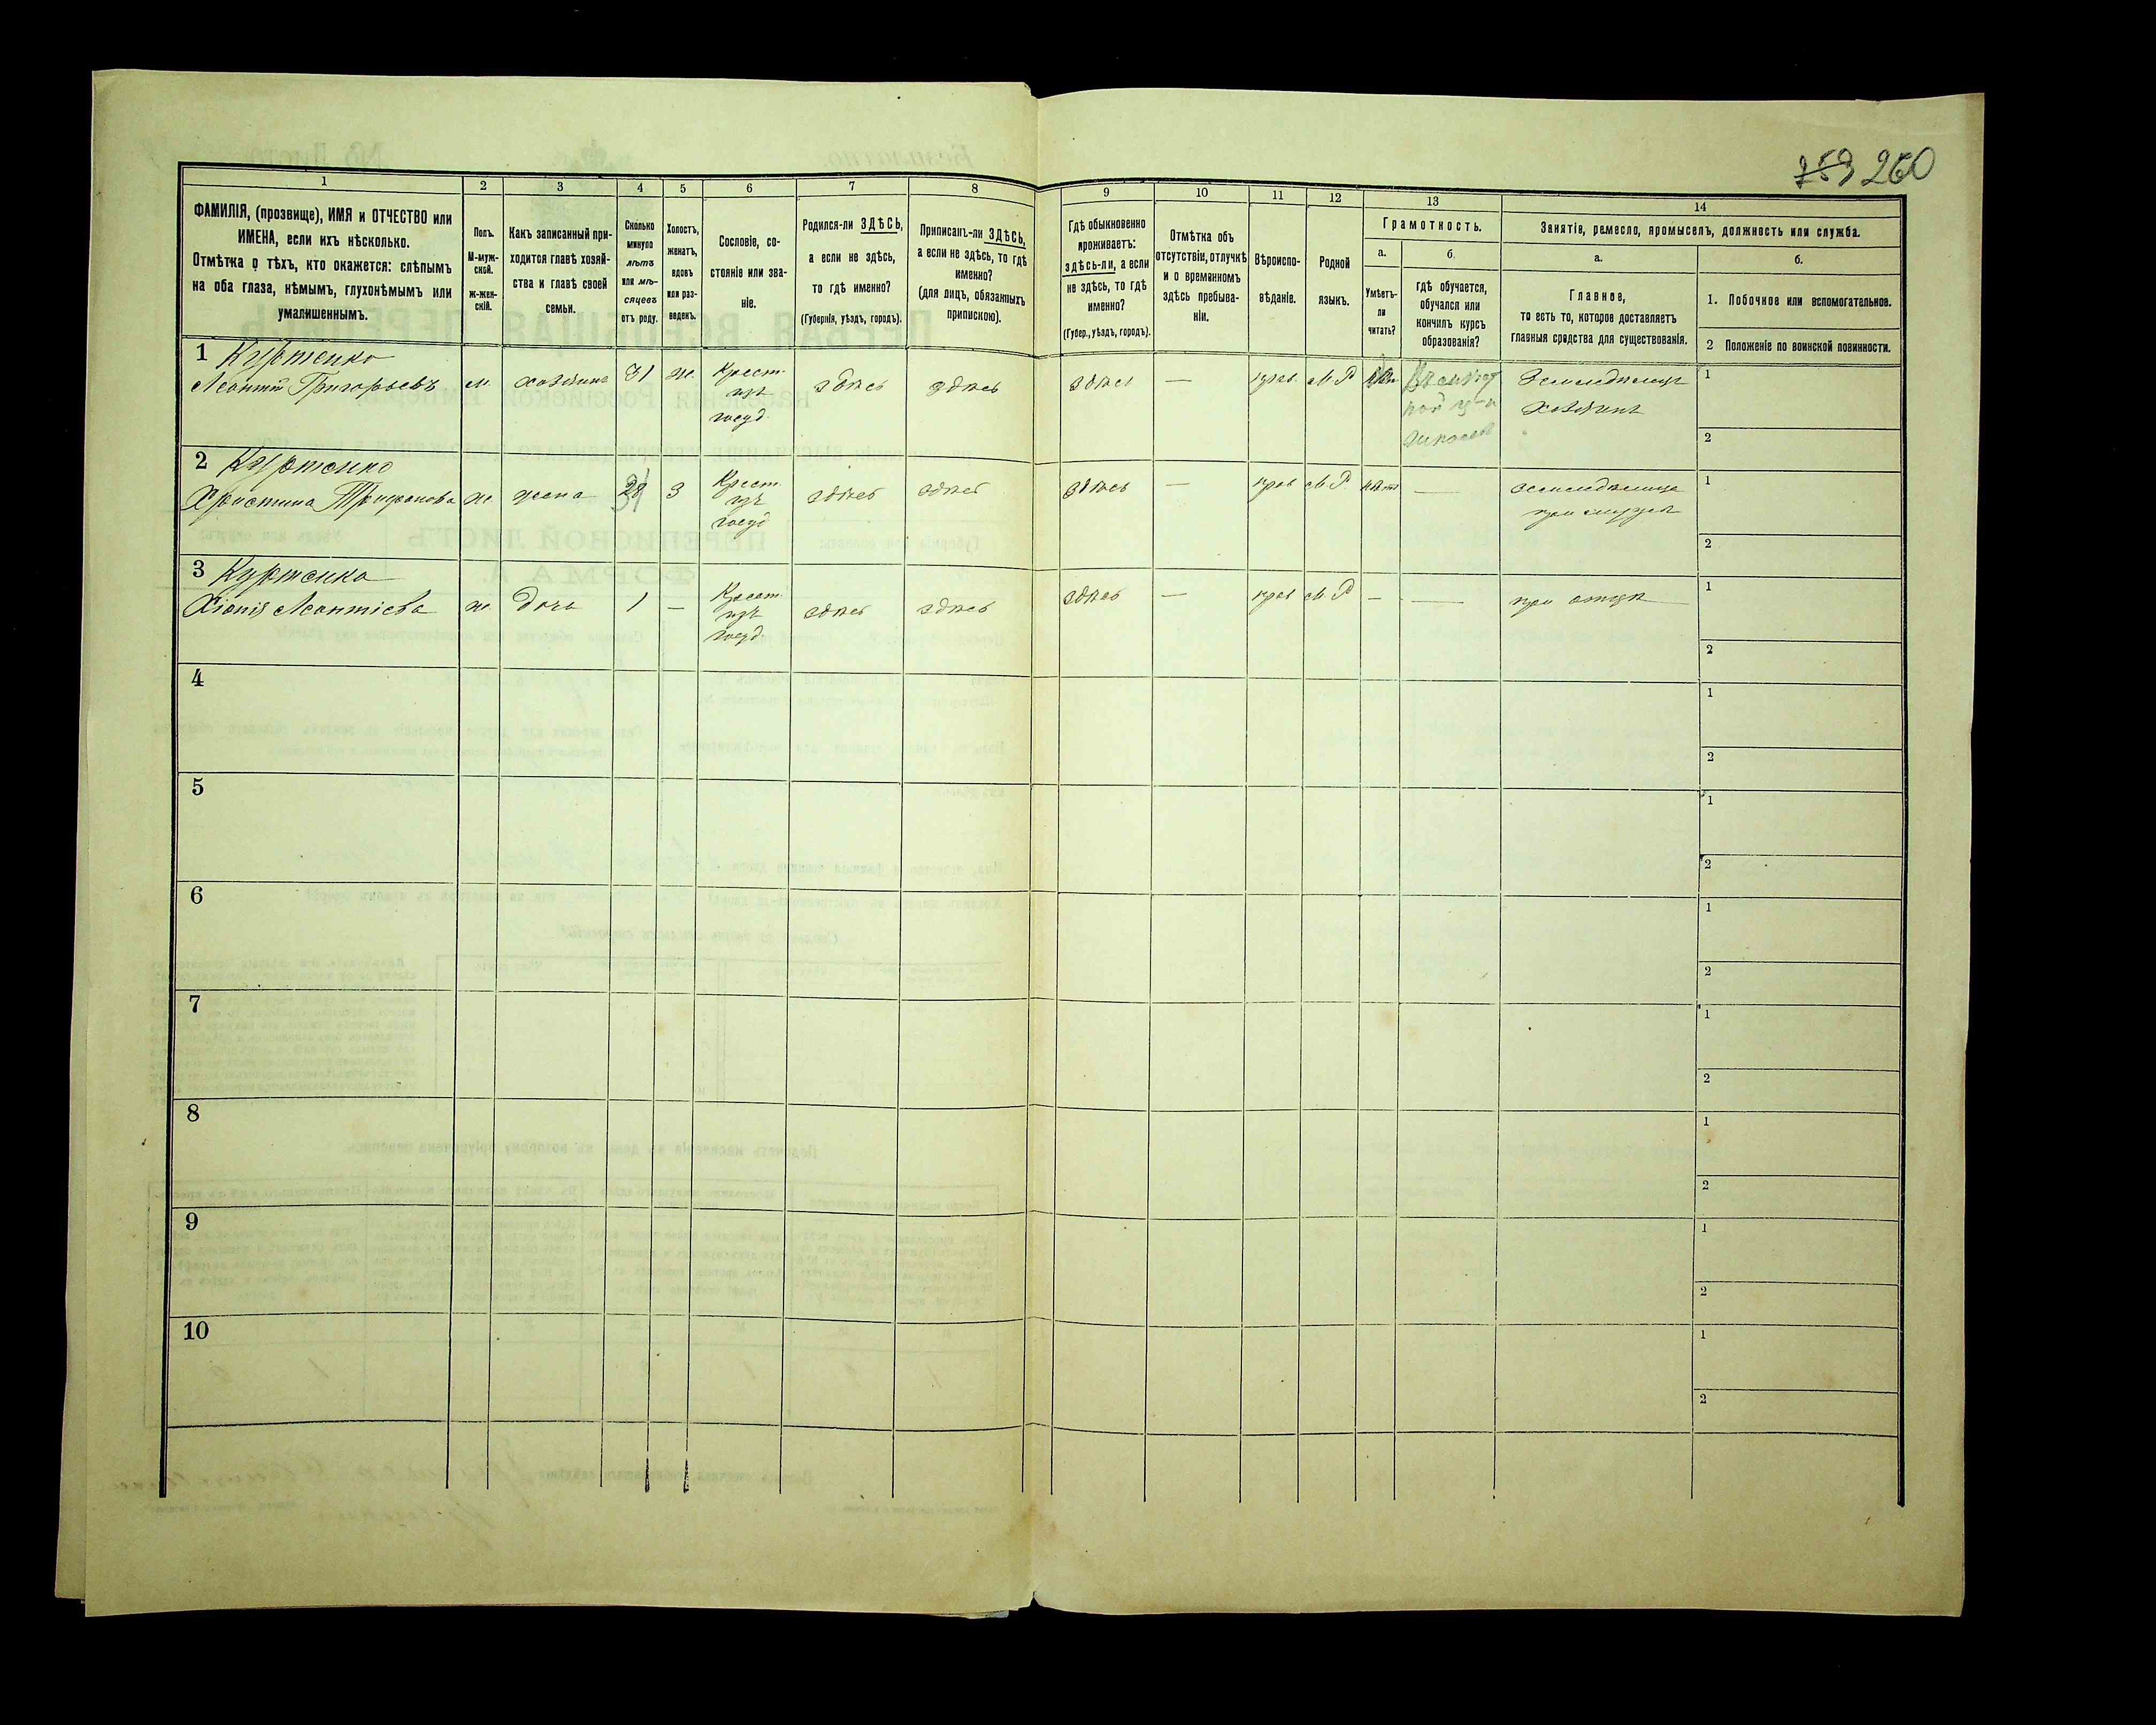 259 260
1 2 3 4 5 6 7 8 9 10 11 12 13 14
ФАМИЛІЯ, (прозвище), ИМЯ и ОТЧЕСТВО или
ИМЕНА, если ихъ нѣсколько.
Отмѣтка о тѣхъ, кто окажется: слѣпымъ
на оба глаза, нѣмымъ, глухонѣмымъ или
умалишеннымъ.
Полъ.
М-муж-
ской.
Ж-жен-
скій.
Какъ записанный при-
ходится главѣ хозяй-
ства и главѣ своей
семьи.
Сколько
минуло
лѣтъ
или мѣ-
сяцевъ
отъ роду.
Холостъ,
женатъ,
вдовъ
или раз-
веденъ.
Сословіе, со-
стояніе или зва-
ніе.
Родился-ли ЗДѢСЬ,
а если не здѣсь,
то гдѣ именно?
(Губернія, уѣздъ, городъ).
Приписанъ-ли ЗДѢСЬ,
а если не здѣсь, то гдѣ
именно?
(для лицъ, обязанныхъ
припискою).
Гдѣ обыкновенно
проживаетъ:
здѣсь-ли, а если
не здѣсь, то гдѣ
именно?
(Губер., уѣздъ, городъ).
Отмѣтка объ
отсутствіи, отлучкѣ
и о временномъ
здѣсь пребыва-
ніи.
Вѣроиспо-
вѣданіе.
Родной
языкъ.
Грамотность.
а.
Умѣетъ-
ли
читать?
б.
гдѣ обучается,
обучался или
кончилъ курсъ
образованія?
Занятіе, ремесло, промыселъ, должность или служба.
а.
Главное,
то есть то, которое доставляетъ
главныя средства для существованія.
б.
1. Побочное или вспомогательное.
2 Положеніе по воинской повинности.
1 Куртенко
Леонтій Григорьевъ м. хозяинъ 31 ж. Крест. изъ госуд. здѣсь здѣсь здѣсь — прав. М.Р. Земледѣлецъ
Хозяинъ
1
2
2 Куртенко
Христина Трифонова ж. жена 31 З Крест. изъ госуд. здѣсь здѣсь здѣсь — прав М.Р. нѣтъ — земледѣлица
при мужѣ
1
2
3 Куртенко
Хіонія Леонтіева ж. дочь 1 — Крест. изъ госуд. здѣсь здѣсь здѣсь — прав М.Р — — при отцѣ
1
2
4
1
2
5
1
2
6
1
2
7
1
2
8
1
2
9
1
2
10
1
2